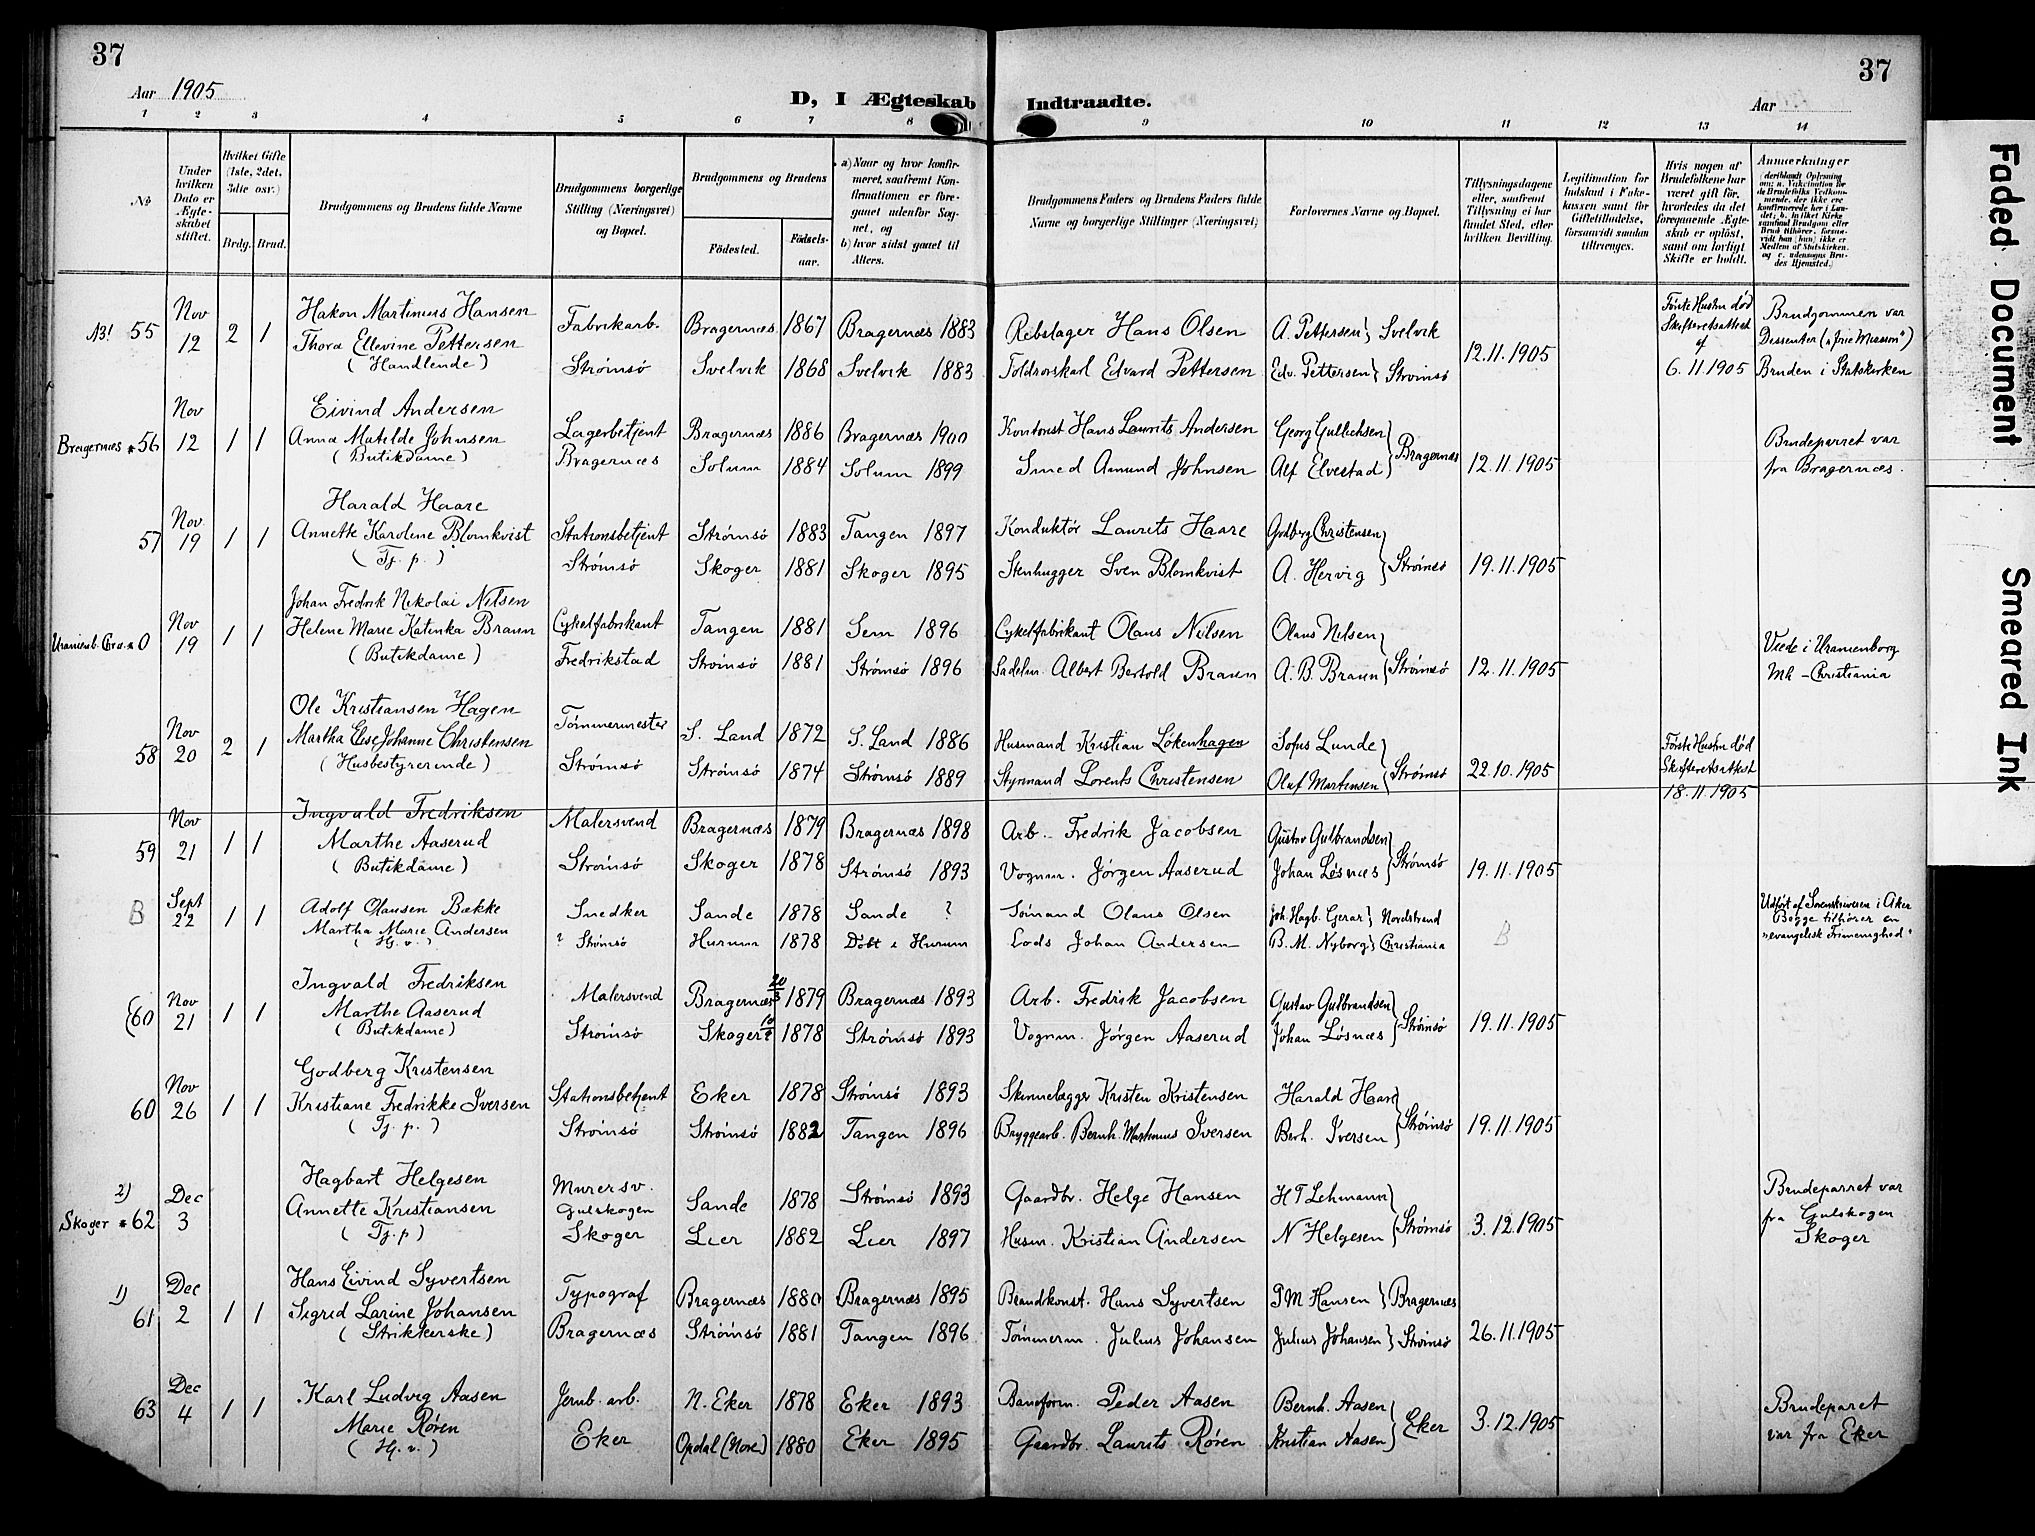 37
37
Aar 1905
D, I Ægteskab Indtraadte.
Aar
1 2 3 4 5 6 7 8 9 10 11 12 13 14
No
Under hvilken Dato er Ægteskabet stiftet.
Hvilket Gifte (1ste, 2det, 3die osv.)
Brdg. Brud.
Brudgommens og Brudens fulde Navne
Brudgommens borgerlige Stilling (Næringsvei) og Bopæl.
Brudgommens og Brudens
Fødested. Fødselsaar.
a) Naar og hvor konfirmeret, saafremt Konfirmationen er foregaaet udenfor Sognet, og
b) hvor sidst gaaet til Alters.
Brudgommens Faders og Brudens Faders fulde Navne og borgerlige Stillinger (Næringsvei)
Forlovernes Navne og Bopæl.
Tillysningsdagene eller, saafremt Tillysning ei har fundet Sted, efter hvilken Bevilling.
Legitimation for Indskud i Enkekassen samt for Giftetilladelse, forsaavidt saadan tiltrænges.
Hvis nogen af Brudefolkene har været gift før, hvorledes da det foregaaende Ægteskab er opløst, samt om lovligt Skifte er holdt.
Anmærkninger
Faded Document
Smeared Ink
55 Nov 12 2 1 Hakon Martinius Hansen Fabrikarb. Bragernæs 1867 Bragernæs 1883 Rebslager Hans Olsen A. Pettersen } Svelvik
Thora Ellevine Pettersen (Handlende) Strømsö Svelvik 1868 Svelvik 1883 Toldrorskarl Edvard Pettersen Edv. Pettersen } Strømsö 12.11.1905
Første Hustru død Skifteretsattest af 6.11.1905
Brudgommen var Dessenter Bruden i Statskirken
Bragernæs * 56 Nov 12 1 1 Eivind Andersen Lagerbetjent Bragernæs 1886 Bragernæs 1900 Kontorist Hans Laurits Andersen Georg Gullichsen
Anna Matilde Johnsen (Butikdame) Bragernæs Solum 1884 Solum 1899 Smed Amund Johnsen Alf Elvestad } Bragernæs 12.11.1905
Brudeparret var fra Bragernæs.
57 Nov 19 1 1 Harald Haare Stationsbetjent Strømsö 1883 Tangen 1897 Konduktör Laurits Haare Godberg Christensen
Annette Karoline Blomkvist (Tj. p.) Strømsö Skoger 1881 Skoger 1895 Stenhugger Sven Blomkvist A. Hervig } Strømsö 19.11.1905
0 Nov 19 1 1 Johan Fredrik Nikolai Nilsen Cykelfabrikant Tangen 1881 Sem 1896 Cykelfabrikant Olaus Nilsen Olaus Nilsen
Helene Marie Katinka Braun (Butikdame) Fredrikstad Strømsö 1881 Strømsö 1896 Sadelm. Albert Bertold Braun A. B. Braun } Strømsö 12.11.1905
Viede i Uranienborg Mk - Christiania
58 Nov 20 2 1 Ole Kristiansen Hagen Tømmermester S. Land 1872 S. Land 1886 Husmand Kristian Lökenhagen Sofus Lunde
Martha Elise Johanne Christensen (Husbestyrerinde) Strømsö Strømsö 1874 Strømsö 1889 Styrmand Lorents Christensen Oluf Martinsen } Strømsö 22.10.1905
Første Hustru død Skifteretsattest 18.11.1905
59 Nov 21 1 1 Ingvald Fredriksen Malersvend Bragernæs 1879 Bragernæs 1898 Arb. Fredrik Jacobsen Gustav Gulbrandsen
Marthe Aaserud (Butikdame) Strømsö Skoger 1878 Strømsö 1893 Vognm. Jörgen Aaserud Johan Lösnæs } Strømsö 19.11.1905
B Sept 22 1 1 Adolf Olausen Bække Snedker Sande 1878 Sande ? Sömand Olaus Olsen Joh. Hagb. Gerar } Nordstrand
Martha Marie Andersen (Hj. v.) ? Strømsö Hurum 1878 Döbt i Hurum Lods Johan Andersen B. M. Nyborg } Christiania B
Udfört af Sorenskriveren i Aker Begge tilhörer en "evangelisk Frimenighed"
(60 Nov 21 1 1 Ingvald Fredriksen Malersvend Bragernæs 20/3 1879 Bragernæs 1893 Arb. Fredrik Jacobsen Gustav Gulbrandsen
Marthe Aaserud (Butikdame) Strømsö Skoger 1878 Strømsö 1893 Vognm. Jörgen Aaserud Johan Lösnæs } Strømsö 19.11.1905
60 Nov 26 1 1 Godberg Kristensen Stationsbetjent Eker 1878 Strømsö 1893 Skinnelægger Kristen Kristensen Harald Haare
Kristiane Fredrikke Iversen (Tj. p.) Strømsö Strømsö 1882 Tangen 1896 Bryggearb. Bernh. Martinius Iversen Berh. Iversen } Strømsö 19.11.1905
2) Skoger * 62 Dec 3 Hagbart Helgesen Murersv. Gulskogen Sande 1878 Strømsö 1893 Gaardbr. Helge Hansen H T Lehmann
Annette Kristiansen (Tj. p) Skoger Lier 1882 Lier 1897 Husm. Kristian Andersen N Helgesen } Strømsö 3.12.1905
Brudeparret var fra Gulskogen Skoger
1) 61 Dec 2 1 1 Hans Eivind Syvertsen Typograf Bragernæs 1880 Bragernæs 1895 Brandkonst. Hans Syvertsen P M Hansen } Bragernæs
Sigrid Larine Johansen (Strikkerske) Bragernæs Strømsö 1881 Tangen 1896 Tømmerm. Julius Johansen Julius Johansen } Strømsö 26.11.1905
63 Dec 4 1 1 Karl Ludvig Aasen Jernb. arb. N. Eker 1878 Eker 1893 Baneform. Peder Aasen Bernh. Aasen
Marie Røren (Hj. v.) Eker Opdal (Nore) 1880 Eker 1895 Gaardbr. Laurits Røren Kristian Aasen } Eker 3.12.1905
Brudeparet var fra Eker